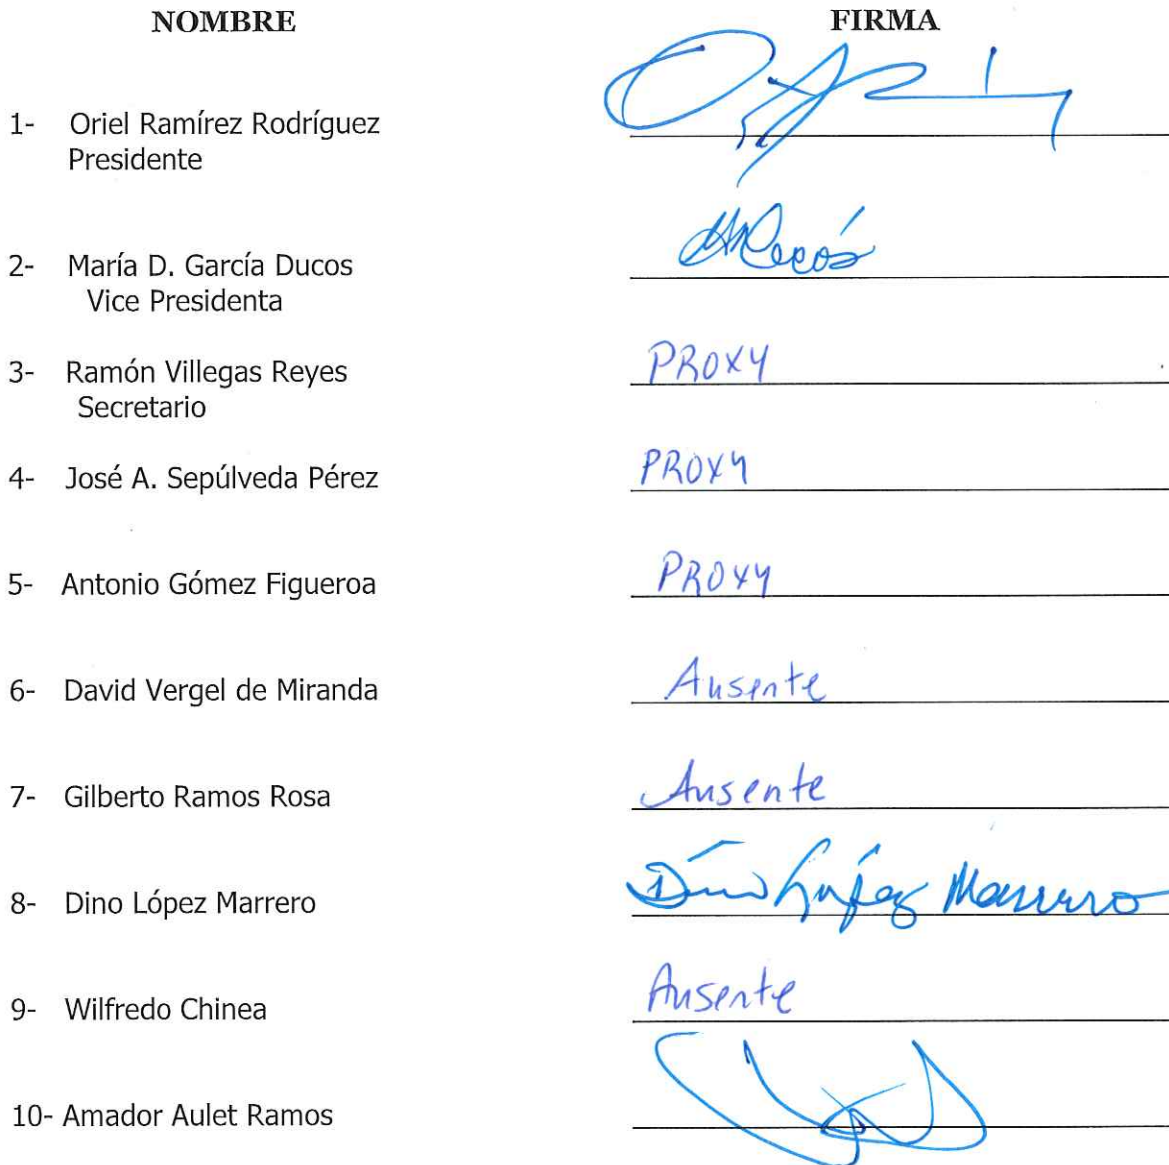 NOMBRE FIRMA
1- Oriel Ramírez Rodríguez
Presidente
2- María D. García Ducos
Vice Presidenta
3- Ramón Villegas Reyes PROXY
Secretario
4- José A. Sepúlveda Pérez PROXY
5- Antonio Gómez Figueroa PROXY
6- David Vergel de Miranda Ausente
7- Gilberto Ramos Rosa Ausente
8- Dino López Marrero Dino López Marrero
9- Wilfredo Chinea Ausente
10- Amador Aulet Ramos